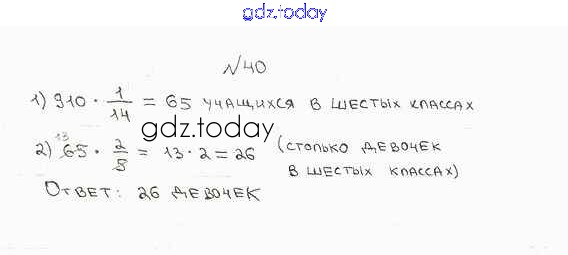 gdz.today
№40
1) 910 · 1/14 = 65 учащихся в шестых классах
gdz.today
2) 65 · 2/5 = 13 · 2 = 26 (столько девочек
13
в шестых классах)
Ответ: 26 девочек